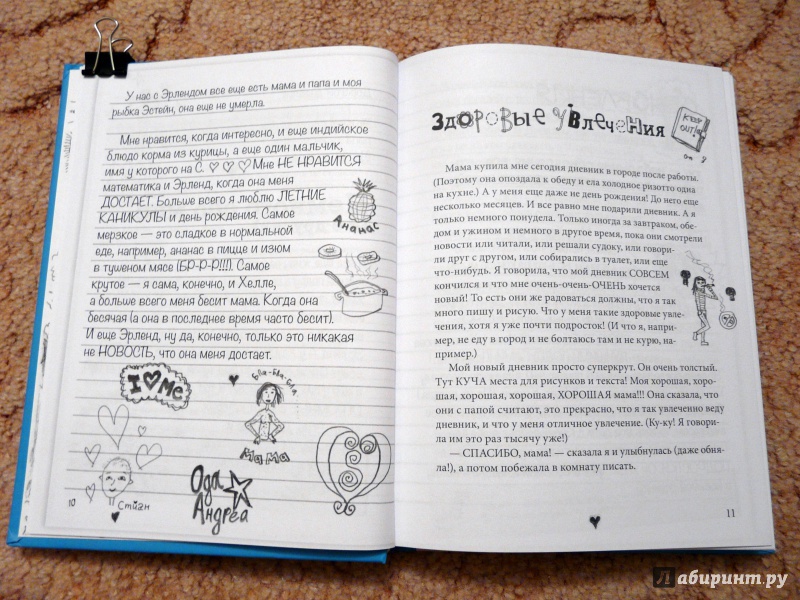 У нас с Эрлендом все еще есть мама и папа и моя
рыбка Эстейн, она еще не умерла.
Мне нравится, когда интересно, и еще индийское
блюдо корма из курицы, а еще один мальчик,
имя у которого на С. ♡ ♡ ♡ Мне НЕ НРАВИТСЯ
математика и Эрленд, когда она меня
ДОСТАЕТ. Больше всего я люблю ЛЕТНИЕ
КАНИКУЛЫ и день рождения. Самое
мерзкое — это сладкое в нормальной
еде, например, ананас в пицце и изюм
в тушеном мясе (БР-Р-Р!!!). Самое
крутое — я сама, конечно, и Хелле,
а больше всего меня бесит мама. Когда она
бесячая (а она в последнее время часто бесит).
И еще Эрленд, ну да, конечно, только это никакая
не НОВОСТЬ, что она меня достает.
Ананас
I ♡ Me
Бла-бла-бла
Мама
Стиан
Ода
Андреа
10
Здоровые увлечения
KEEP
OUT!
Мама купила мне сегодня дневник в городе после работы.
(Поэтому она опоздала к обеду и ела холодное ризотто одна
на кухне.) А у меня еще даже не день рождения! До него еще
несколько месяцев. И все равно мне подарили дневник. А я
только немного понудела. Только иногда за завтраком, обе-
дом и ужином и немного в другое время, пока они смотрели
новости или читали, или решали судоку, или говори-
ли друг с другом, или собирались в туалет, или еще
что-нибудь. Я говорила, что мой дневник СОВСЕМ
кончился и что мне очень-очень-ОЧЕНЬ хочется
новый! То есть они же радоваться должны, что я так
много пишу и рисую. Что у меня такие здоровые увле-
чения, хотя я уже почти подросток! (И что я, напри-
мер, не еду в город и не болтаюсь там и не курю, на-
пример.)
Мой новый дневник просто суперкрут. Он очень толстый.
Тут КУЧА места для рисунков и текста! Моя хорошая, хоро-
шая, хорошая, хорошая, ХОРОШАЯ мама!!! Она сказала, что
они с папой считают, это прекрасно, что я так увлеченно веду
дневник, и что у меня отличное увлечение. (Ку-ку! Я говори-
ла им это раз тысячу уже!)
— СПАСИБО, мама! — сказала я и улыбнулась (даже обня-
ла!), а потом побежала в комнату писать.
11
Лабиринт.ру